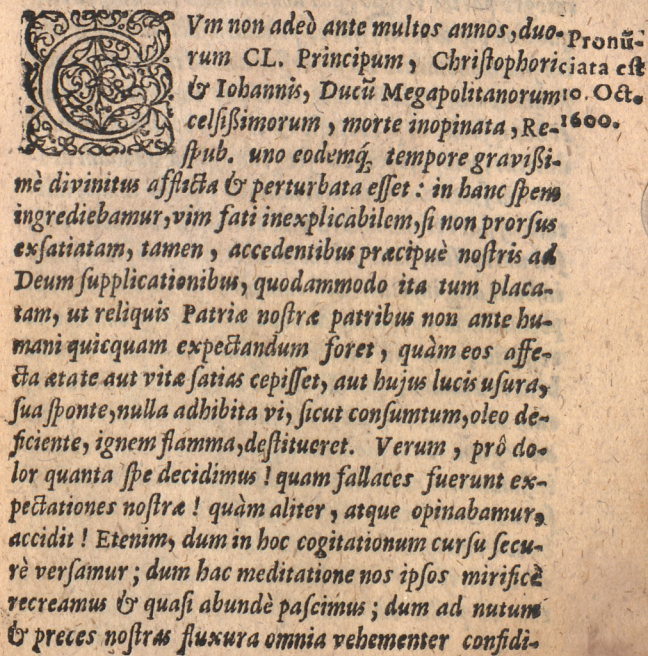 CVm non adeò ante multos annos, duo-
rum CL. Principum, Christophori
& Iohannis, Ducũ Megapolitanorum
celsißimorum, morte inopinata, Re-
spub. uno eodemq́; tempore gravißi-
mè divinitus afflicta & perturbata esset: in hanc spem
ingrediebamur, vim fati inexplicabilem, si non prorsus
exsatiatam, tamen, accedentibus præcipuè nostris ad
Deum supplicationibus, quodammodo ita tum placa-
tam, ut reliquis Patriæ nostræ patribus non ante hu-
mani quicquam expectandum foret, quàm eos affe-
cta ætate aut vitæ satias cepisset, aut hujus lucis usura,
sua sponte, nulla adhibita vi, sicut consumtum, oleo de-
ficiente, ignem flamma, destitueret. Verum, prô do-
lor quanta spe decidimus! quam fallaces fuerunt ex-
pectationes nostræ! quàm aliter, atque opinabamur,
accidit! Etenim, dum in hoc cogitationum cursu secu-
rè versamur; dum hac meditatione nos ipsos mirificè
recreamus & quasi abundè pascimus; dum ad nutum
& preces nostras fluxura omnia vehementer confidi-
Pronũ-
ciata est
10. Oct.
1600.